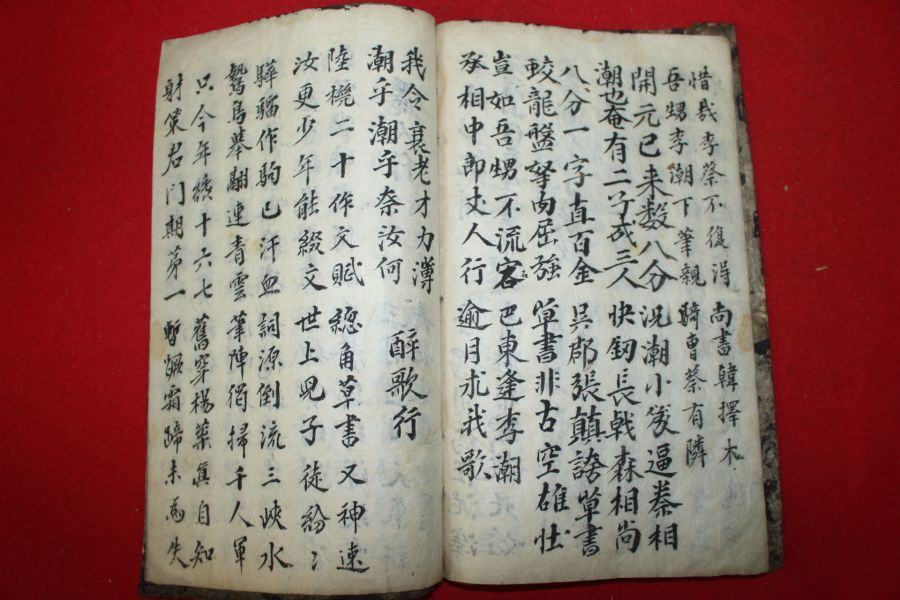 惜哉李蔡不復淂 尚書韓擇木
吾甥李潮下筆親 騎曹蔡有隣
開元已來数八分 况潮小篆逼秦相
潮也奄有二子成三人 快釰長戟森相尚
八分一字直百金 吴郡張顛誇草書
蛟龍盤拏肉屈強 草書非古空雄壮
豈如吾甥不流宕 巴東逢李潮
丞相中郎丈人行 逾月求我歌
我今衰老才力薄
潮乎潮乎奈汝何 醉歌行
陸機二十作文賦 緫角草書又神速
汝更少年能綴文 世上児子徒紛〻
驊騮作駒已汗血 詞源倒流三峡水
鷙鳥擧翮連青雲 筆陣獨掃千人軍
只今年纔十六七 舊穿楊葉真自知
射策君門期第一 暫蹶霜蹄未為失